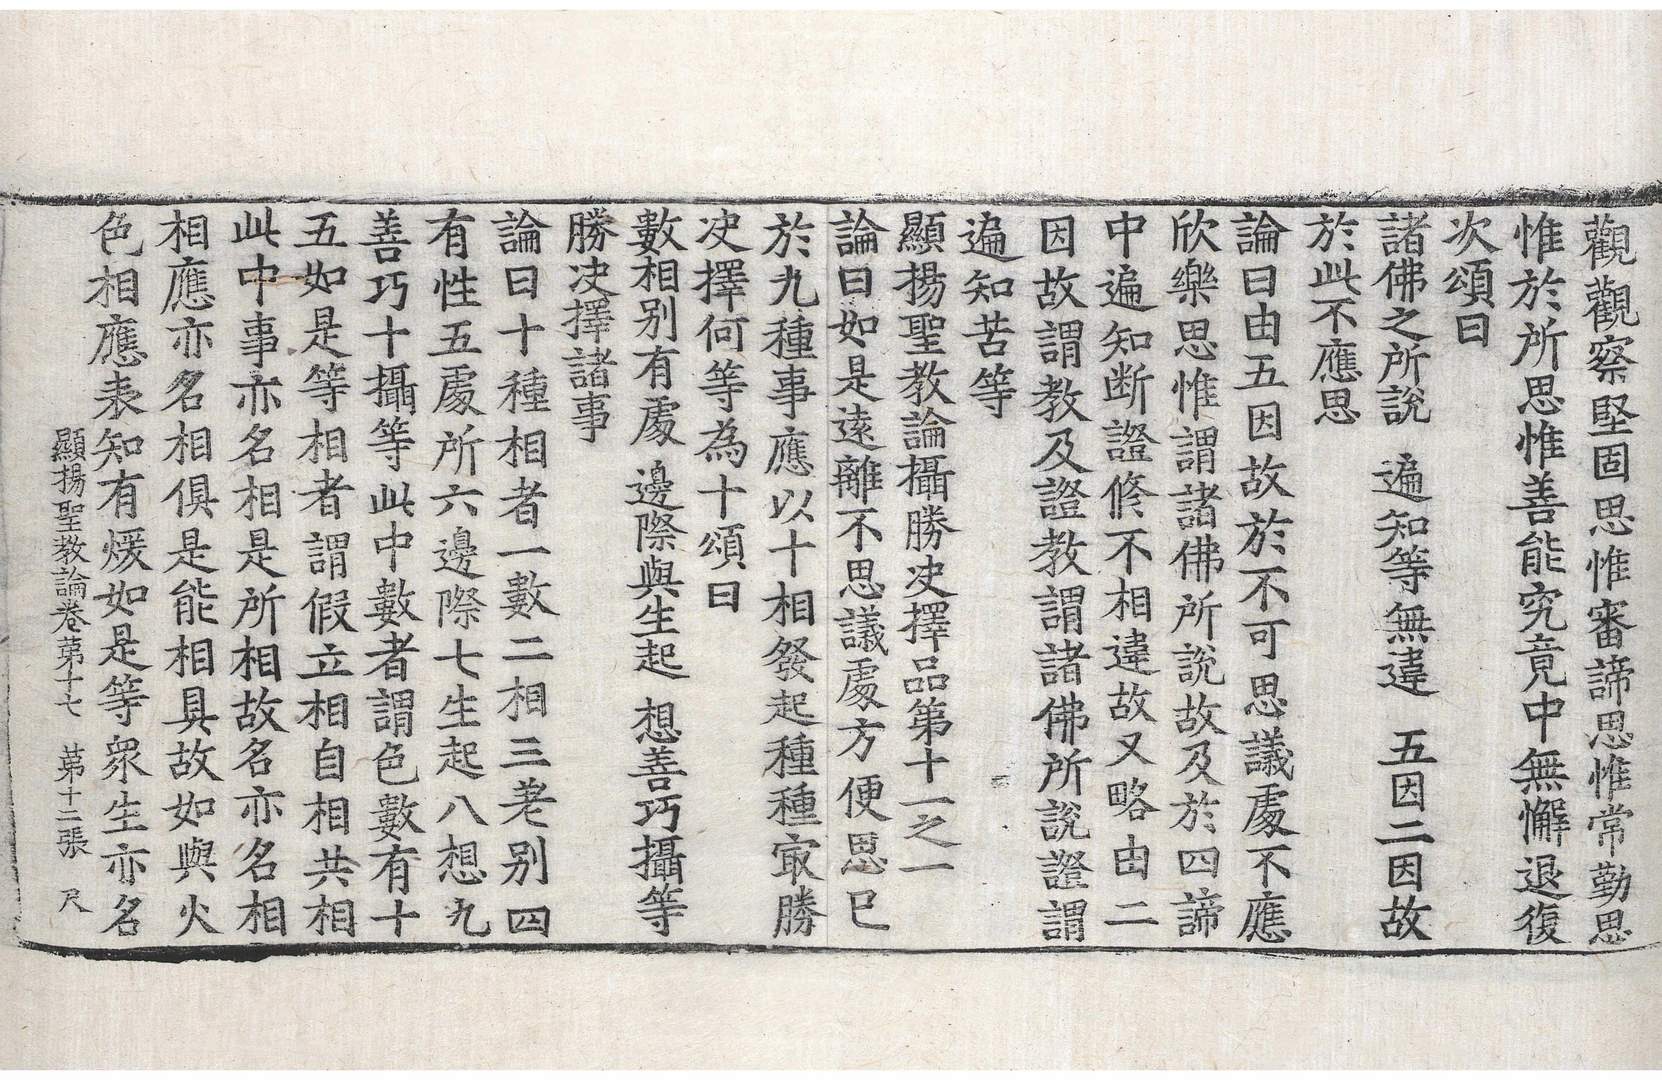 觀觀察堅固思惟審諦思惟常勤思
惟於所思惟善能究竟中無懈退復
次頌曰
諸佛之所說 遍知等無違 五因二因故
於此不應思
論曰由五因故於不可思議處不應
欣樂思惟謂諸佛所說故及於四諦
中遍知断證修不相違故又略由二
因故謂教及證教謂諸佛所說證謂
遍知苦等
顯揚聖教論攝勝決擇品第十一之一
論曰如是遠離不思議處方便思已
於九種事應以十相發起種種㝡勝
决擇何等為十頌曰
數相别有處 邊際與生起 想善巧攝等
勝决擇諸事
論曰十種相者一數二相三差别四
有性五處所六邊際七生起八想九
善巧十攝等此中數者謂色數有十
五如是等相者謂假立相自相共相
此中事亦名相是所相故名亦名相
相應亦名相俱是能相具故如與火
色相應表知有煖如是等衆生亦名
顯揚聖教論卷苐十七 苐十二張 尺